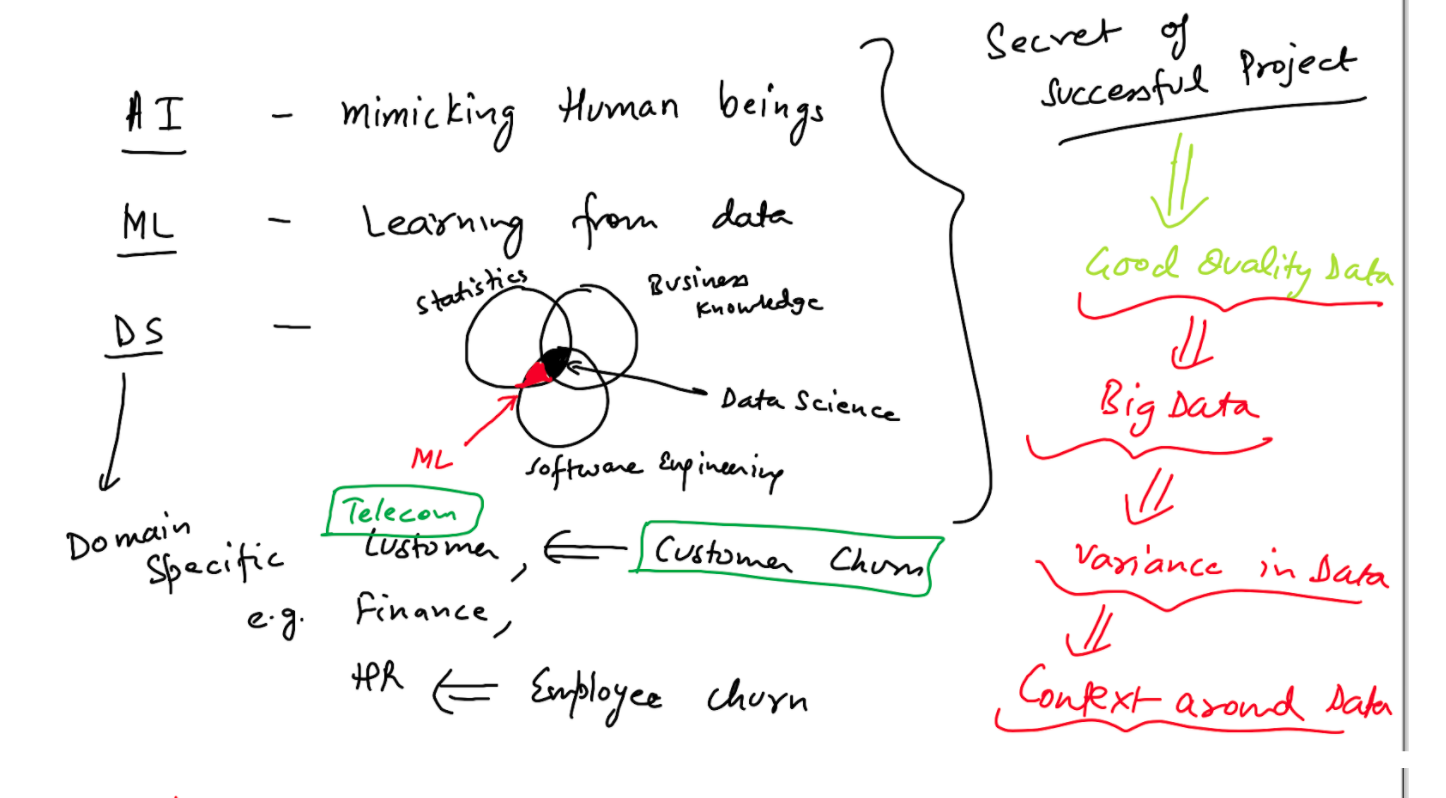 AI - mimicking Human beings
ML - Learning from data
DS -
Statistics
Business
Knowledge
Data Science
ML
Software Engineering
Domain
Specific
e.g.
Telecom
Customer, ⇐ Customer Churn
Finance,
HR ⇐ Employee churn
Secret of
Successful Project
Good Quality Data
Big Data
Variance in Data
Context around Data